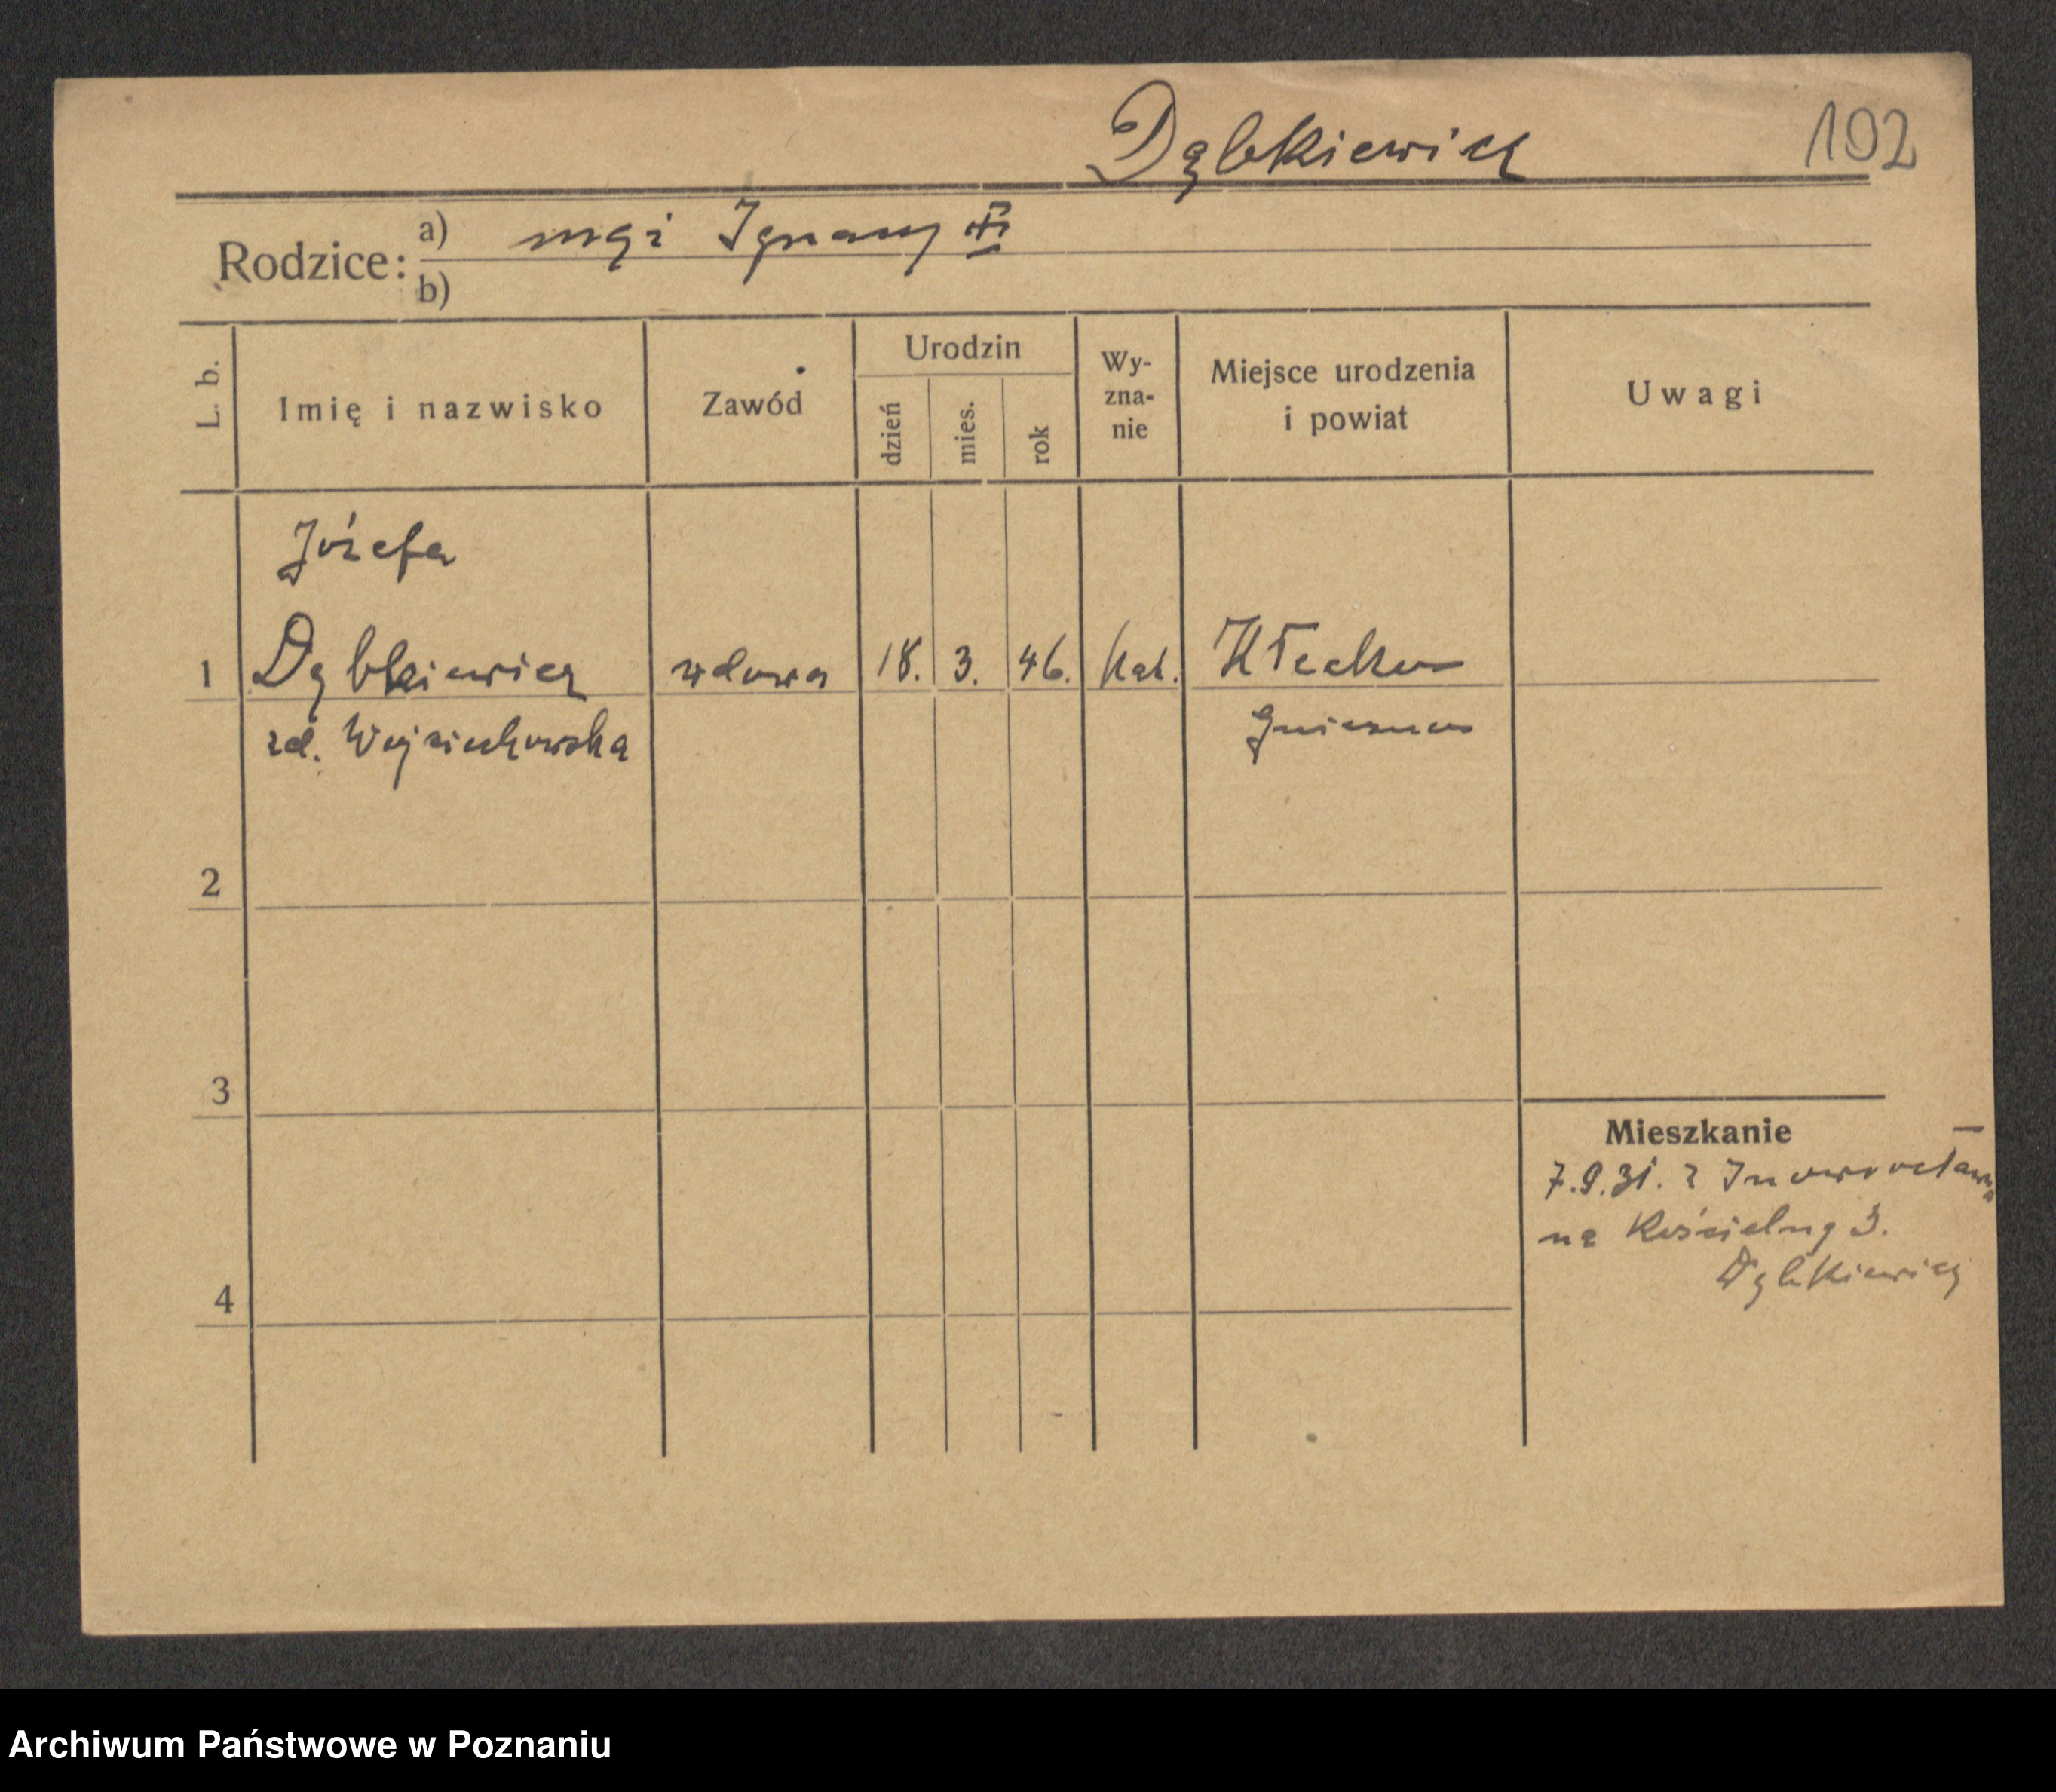 Dąbkiewicz
102
Rodzice:
a) mąż Ignacy
b)
L. b.
Imię i nazwisko
Zawód
Urodzin
dzień
mies.
rok
Wy-
zna-
nie
Miejsce urodzenia
i powiat
Uwagi
Józefa
1 Dąbkiewicz wdowa 18. 3. 46. kat. Kłecko
zd. Wojciechowska Gniezno
2
3
4
Mieszkanie
7.9.31. z Inowrocławia
na Kościelną 3.
Dąbkiewicz
Archiwum Państwowe w Poznaniu